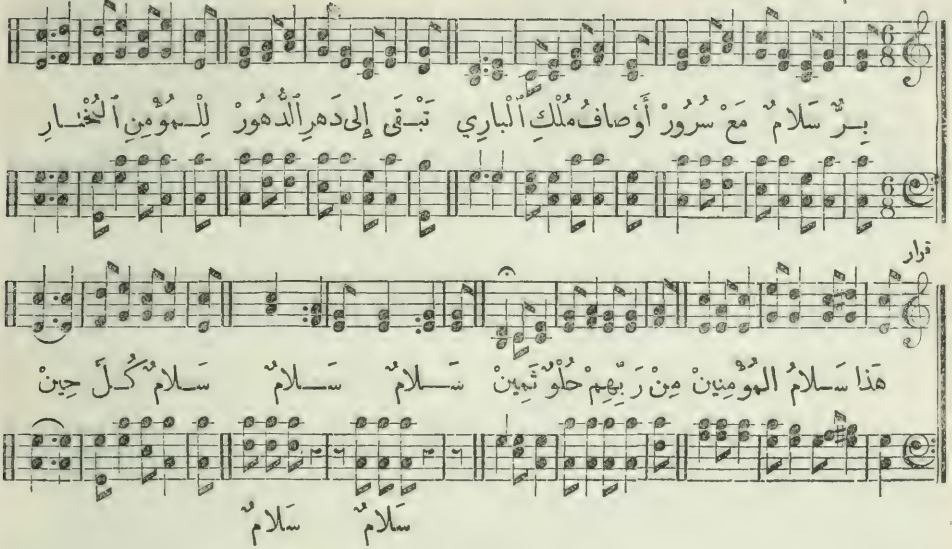 بِرٌّ سَلَامٌ مَعْ سُرُورْ أَوْصافُ مُلْكِ ٱلْباري تَبْقَى إِلى دَهرِ ٱلدُّهُورْ لِلْمُؤْمِنِ ٱلْمُخْتارِ
قرار
هَذا سَلامُ المُؤْمِنِينْ مِنْ رَبِّهِمْ حُلْوٌ ثَمِينْ سَلامٌ سَلامٌ سَلامٌ سَلامٌ كُلَّ حِينْ
سَلامٌ سَلامٌ